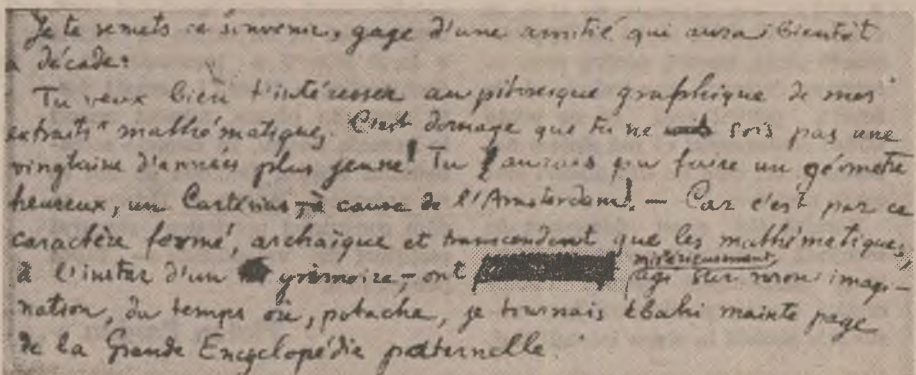 Je te remets ce souvenir, gage d'une amitié qui aura bientôt
décade:
Tu veux bien t'intéresser au pittoresque graphique de mes
extraits mathématiques. C'est domage que tu ne sois pas une
vingtaine d'années plus jeune! Tu aurais pu faire un géomètre
heureux, un Cartésius, à cause de l'Amsterdam! — Car c'est par ce
caractère fermé, archaïque et transcendant que les mathématiques,
à l'instar d'un grimoire, ont mystérieusement
agi sur mon imagi-
nation, du temps où, potache, je tournais ébahi mainte page
de la Grande Encyclopédie paternelle.